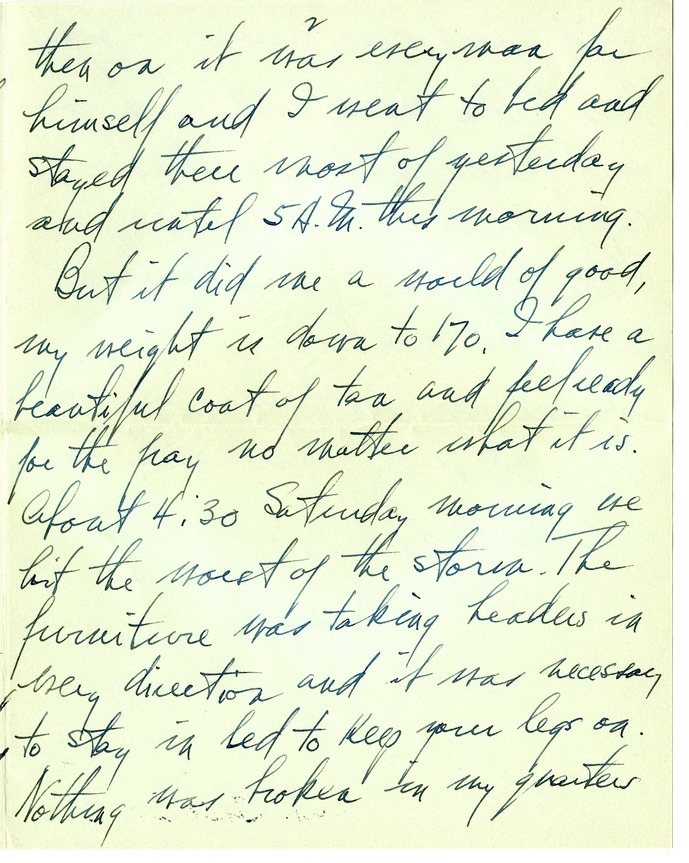 2
then on it was every man for
himself and I went to bed and
stayed there most of yesterday
and until 5 A.M. this morning.
But it did me a world of good,
my weight is down to 170. I have a
beautiful coat of tan and feel ready
for the fray no matter what it is.
About 4:30 Saturday morning we
hit the worst of the storm. The
furniture was taking headers in
every direction and it was necessary
to stay in bed to keep your legs on.
Nothing was broken in my quarters